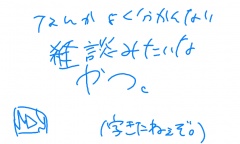 なんか よくわかんない
雑談みたいな
やつ。
(字きたねぇぞ。)